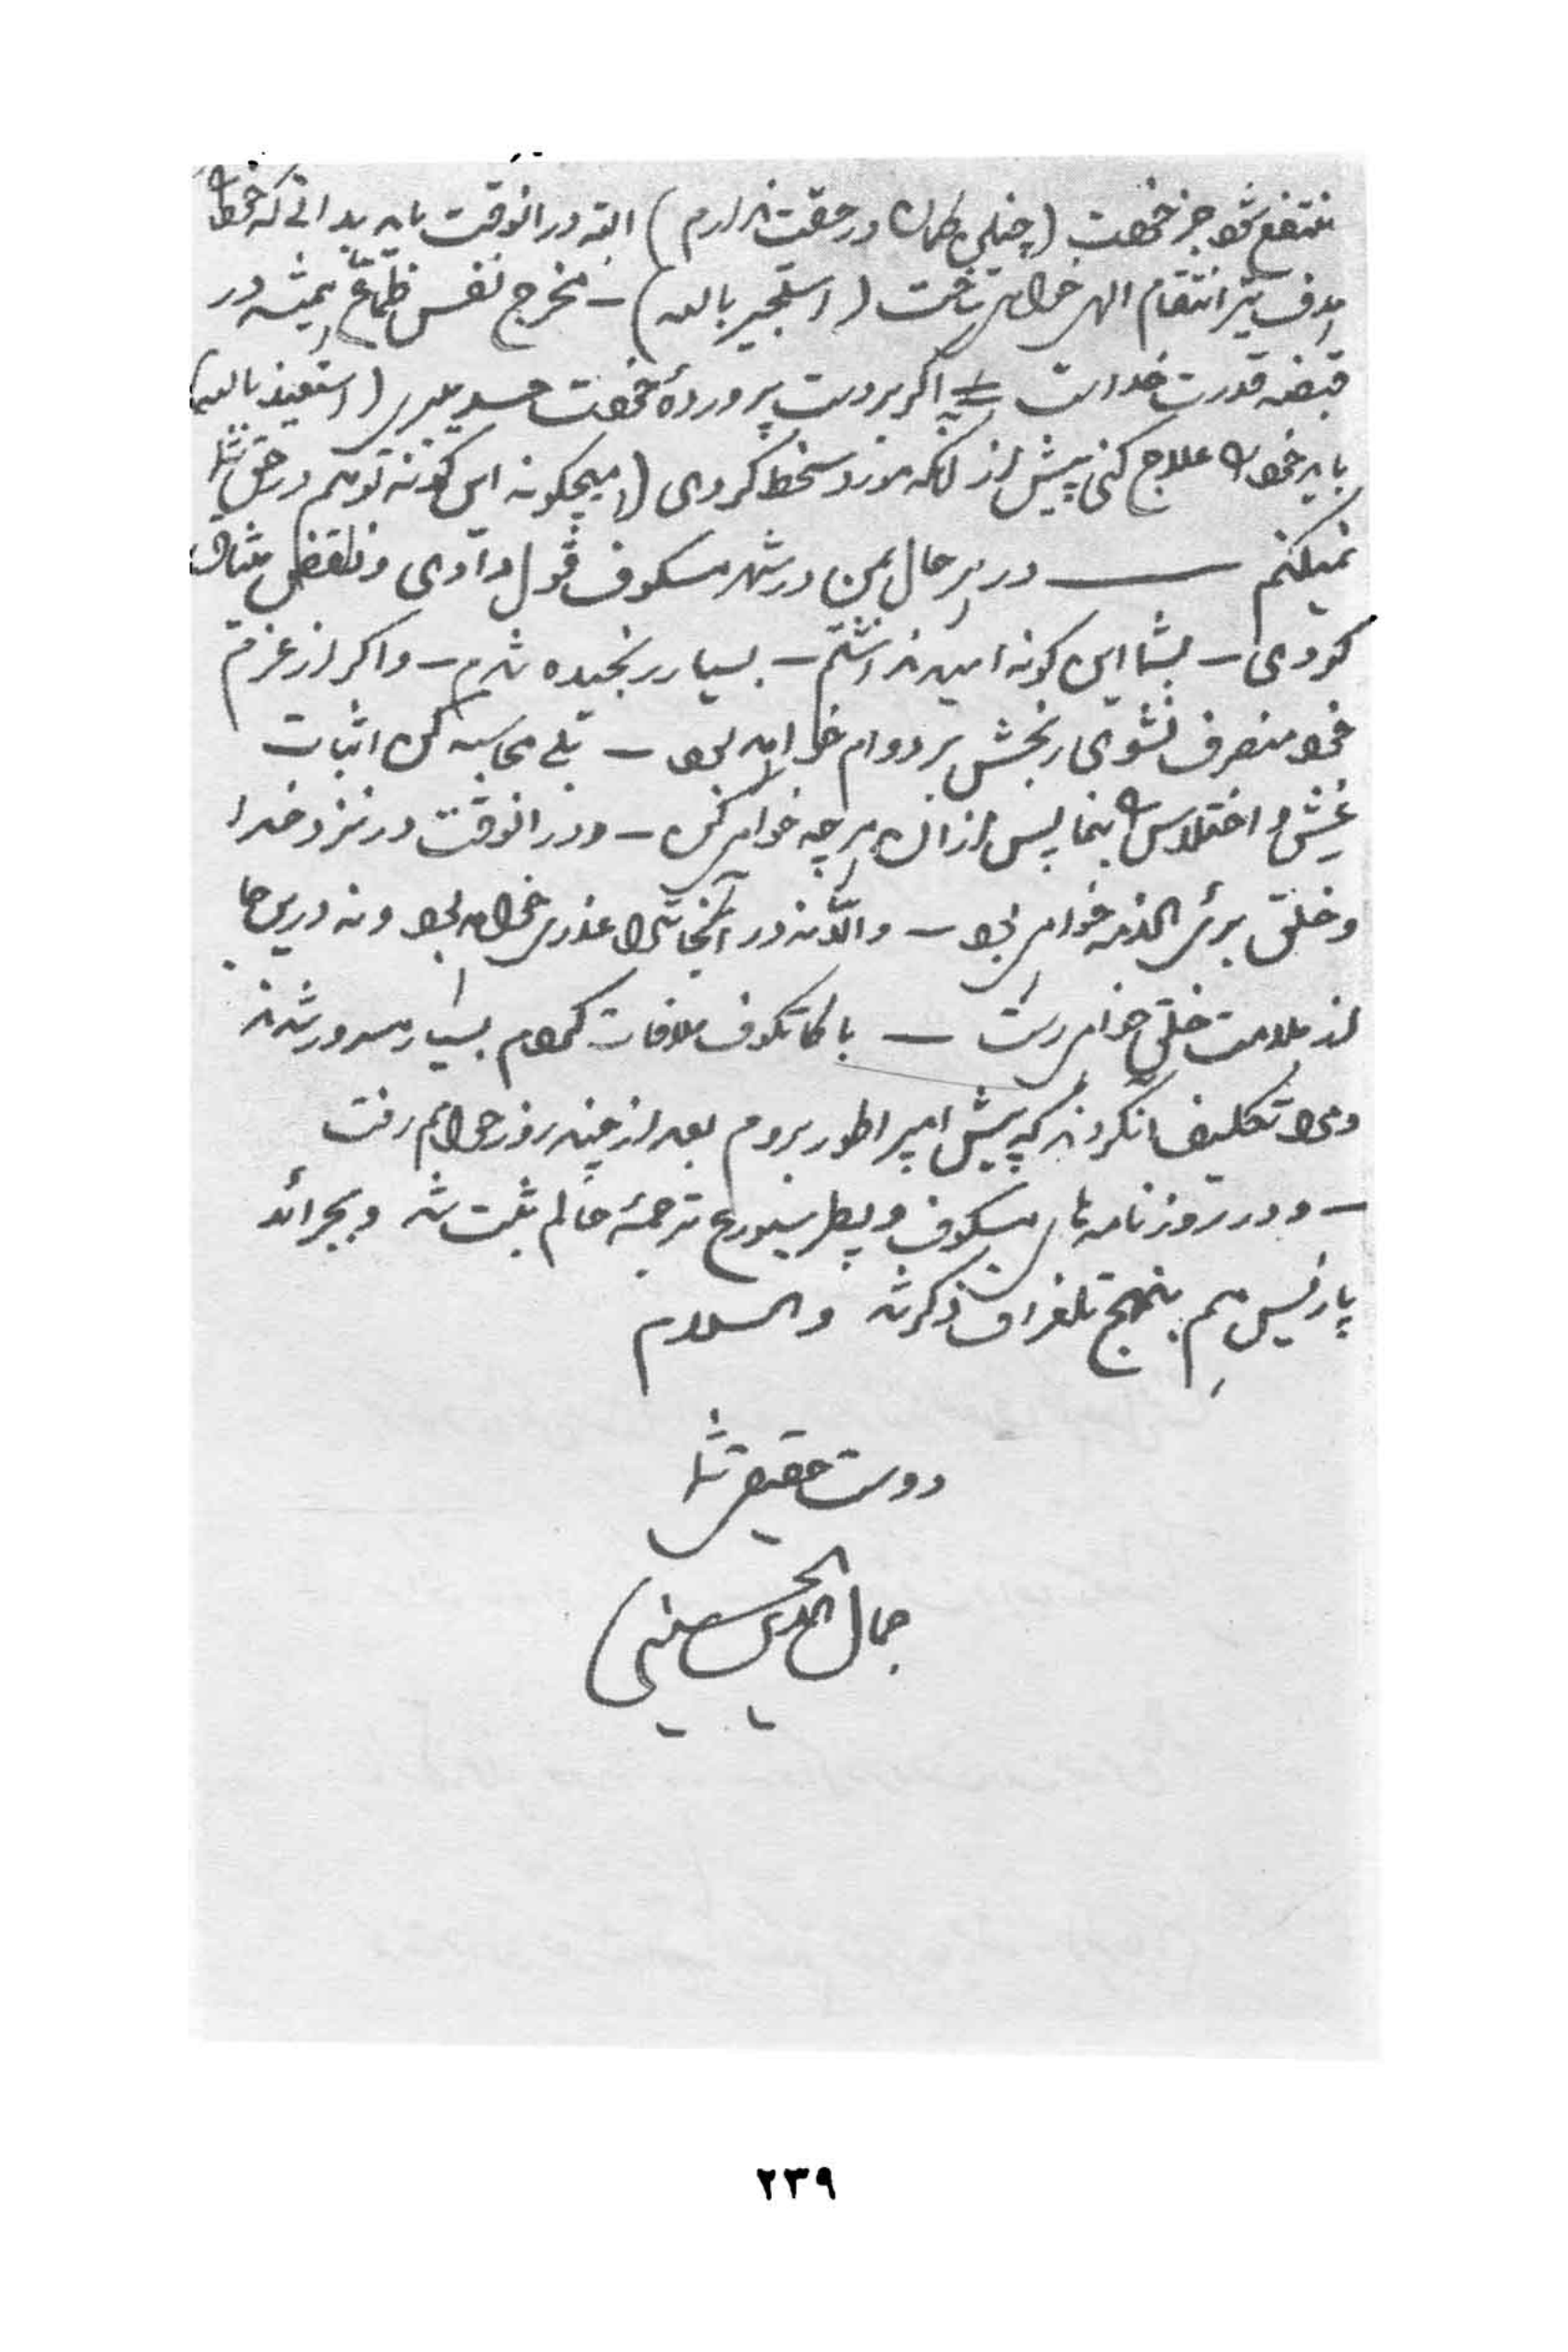 منتفع شود جز خودت (چنین گمان در حقت ندارم) البته در انوقت باید بدانی که خود را
هدف تیر انتقام الهی خواهی ساخت (استجیر بالله) – مخرج نفس طماع همیشه در
قبضه قدرت خداست – اگر بر دست پرورده خودت حسد میبری (استعیذ بالله)
باید خود را علاج کنی پیش از آنکه مورد سخط گردی (هیچگونه این گونه توهم در حق شما
نمیکنم – در هر حال بمن در شهر مسکوف قول دادی و نقض میثاق
کردی – بشما این گونه امید نداشتم – بسیار رنجیده شدم – و اگر از عزم
خود منصرف نشوی رنجش بر دوام خواهد بود – بلی محاسبه کن اثبات
غش و اختلاس را بنما پس از ان هرچه خواهی کن – و در انوقت در نزد خدا
و خلق برئ الذمه خواهی بود – و الّا نه در آنجا ترا عذری خواهد بود و نه درین جا
از ملامت خلق خواهی رست – با کاتکوف ملاقات کردم بسیار مسرور شدند
و مرا تکلیف کردند که پیش امپراطور بروم بعد از چند روز خواهم رفت
– و در روزنامه های مسکوف و پطرسبورغ ترجمهٔ حالم ثبت شد و بجرائد
پاریس هم بنهج تلغراف ذکر شد والسلام
دوست حقیقی شما
جمال الدین الحسینی
۲۳۹